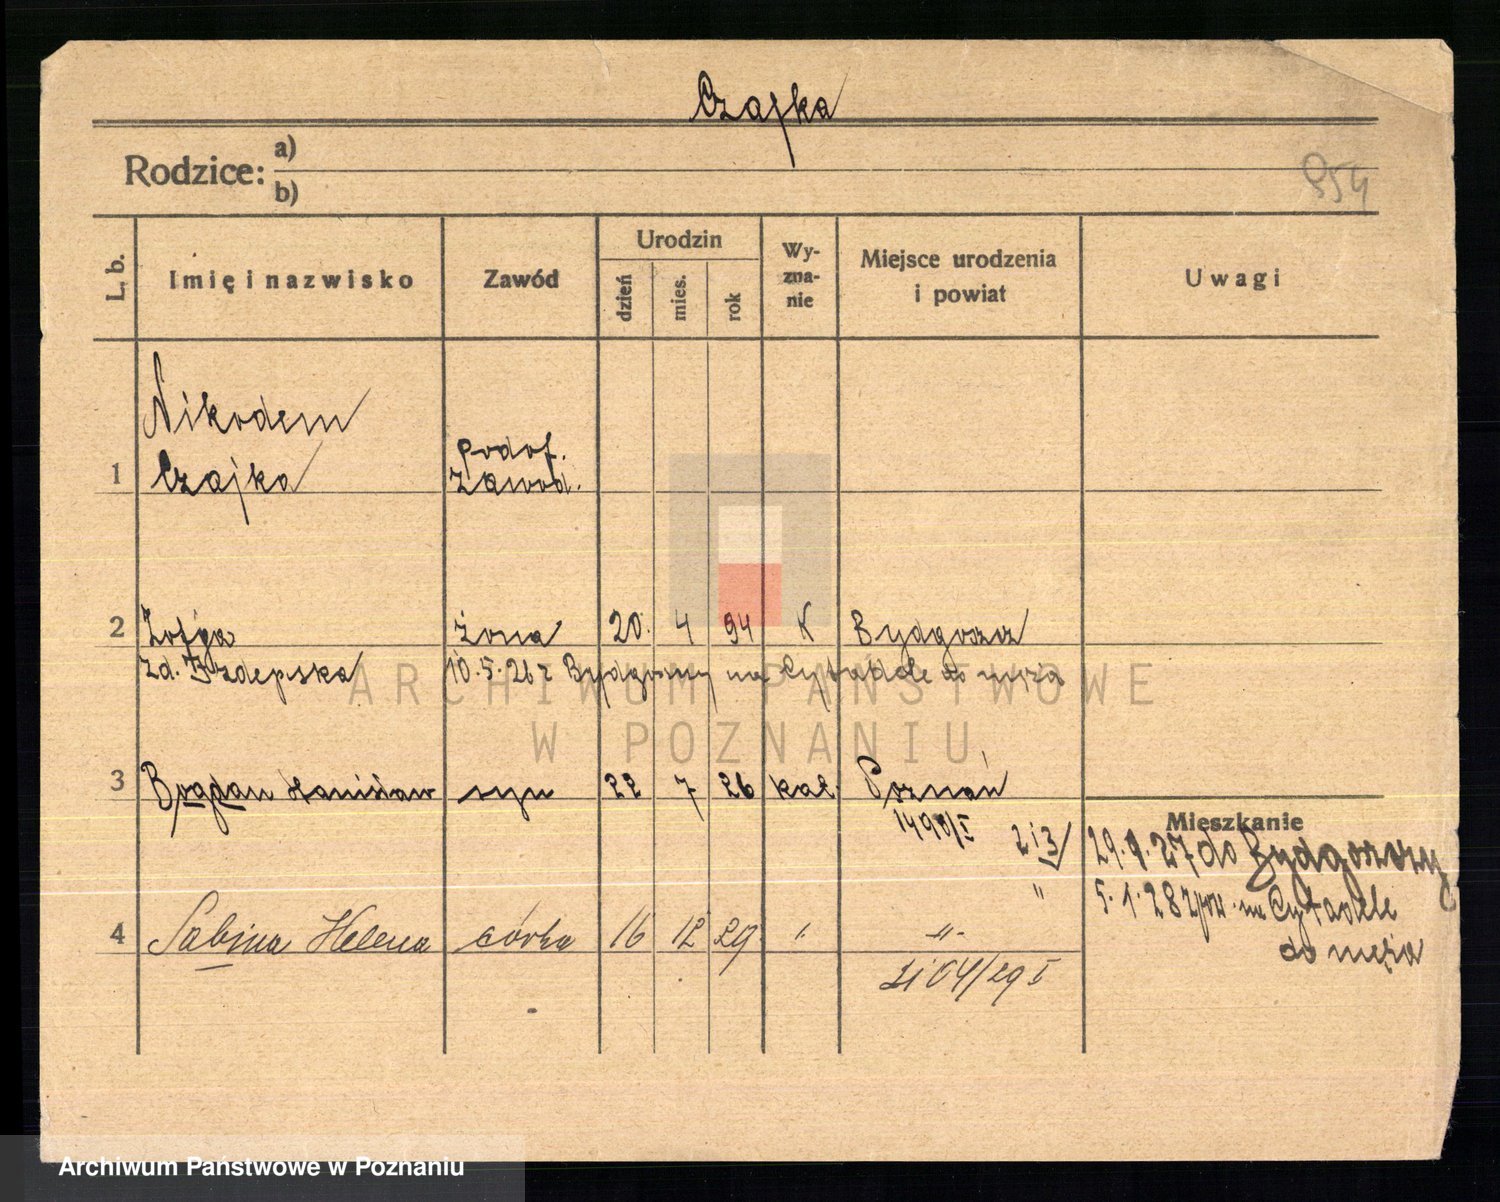 Czajka
Rodzice: a)
b)
854
L. b.
Imię i nazwisko
Zawód
Urodzin
dzień
mies.
rok
Wy-
zna-
nie
Miejsce urodzenia
i powiat
Uwagi
Nikodem
1 Czajka
podof.
zawod.
2 Zofja żona 20. 4 94 K Bydgoszcz
zd. 10.5.26 z Bydgoszczy na Cytadele do męża
3 Bogdan Stanisław syn 22 7 26 kat. Poznań
1490/I
2 i 3/
Mieszkanie
29.1.27 do Bydgoszczy
5.1.28 na Cytadele
do męża
4 Sabina Helena córka 16 12 29 " -"-
/29 I
ARCHIWUM PAŃSTWOWE
W POZNANIU
Archiwum Państwowe w Poznaniu